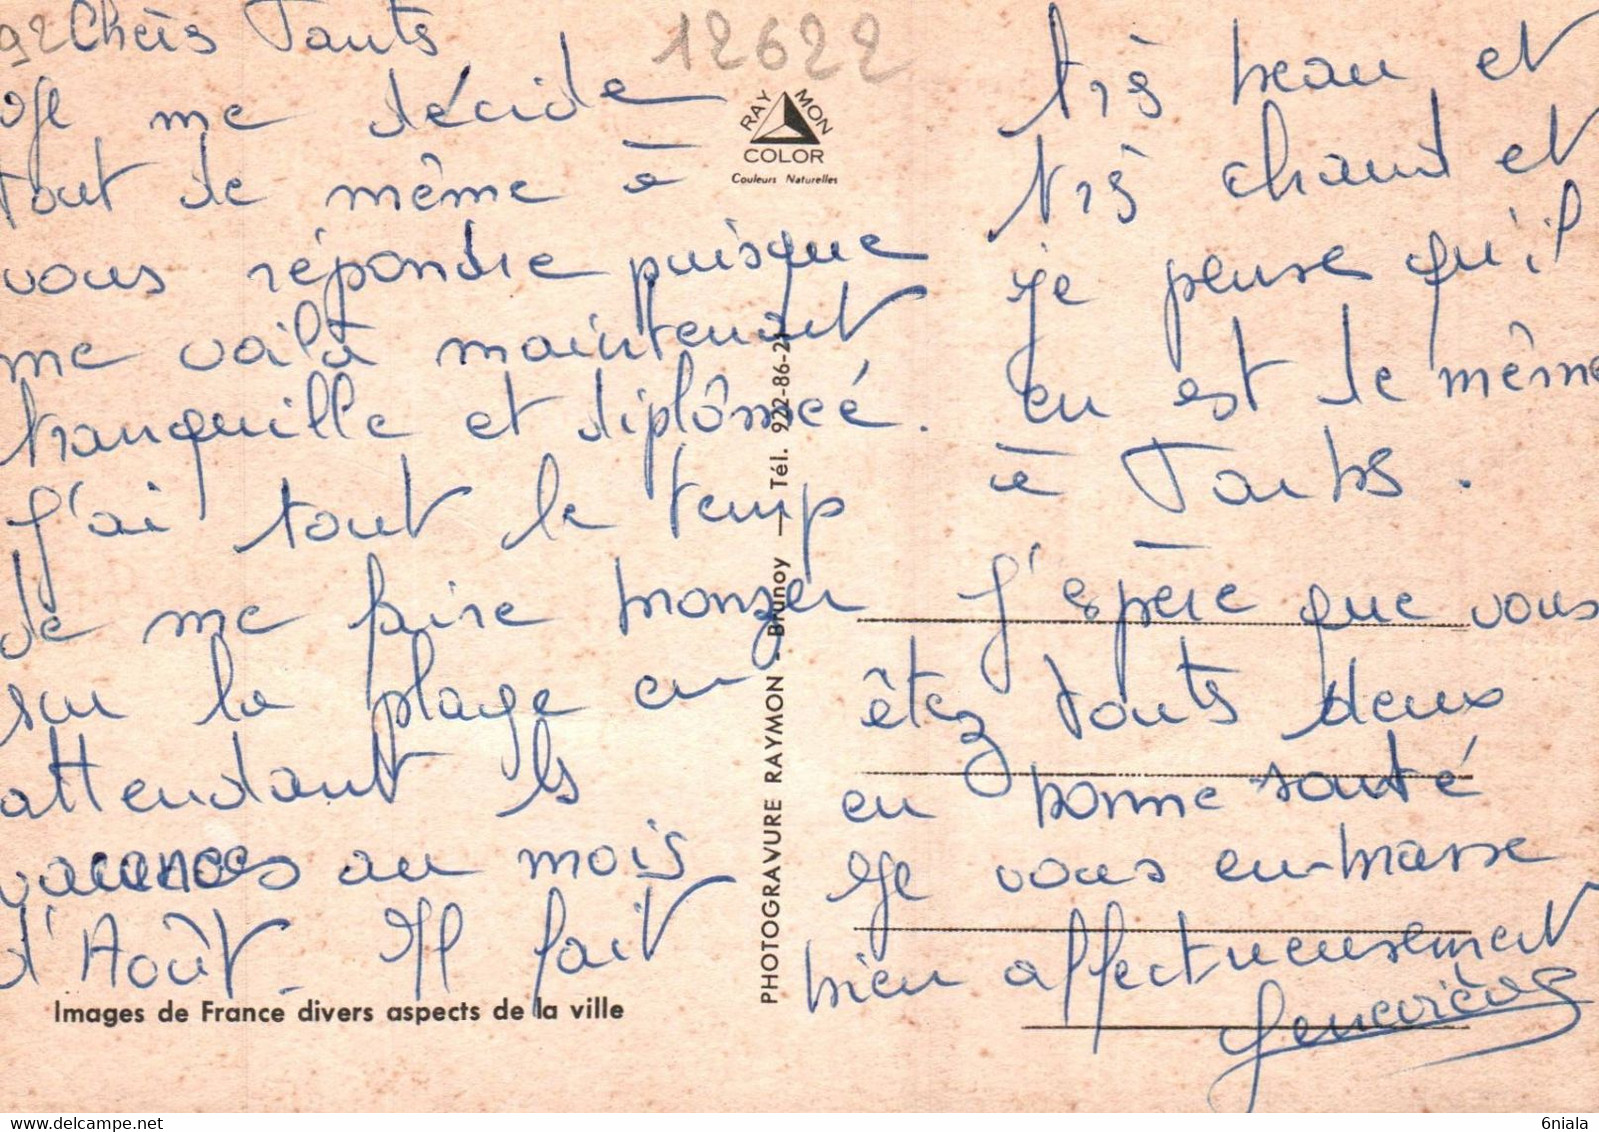 92 Chers Tants
12622
Je me décide
tout de même à
vous répondre puisque
me voilà maintenant
tranquille et diplômée.
J'ai tout le temp
de me faire bronzer
sur la plage en
attendant ls
vacances au mois
d'Août. Il fait
Images de France divers aspects de la ville
RAY MON
COLOR
Couleurs Naturelles
PHOTOGRAVURE RAYMON - Brunoy — Tél. 922-86-21
très beau et
très chaud et
je pense qu'il
en est de même
à
J'espère que vous
êtez touts deux
en bonne santé
Je vous en-brasse
bien affectueusement
Geneviève
6niala